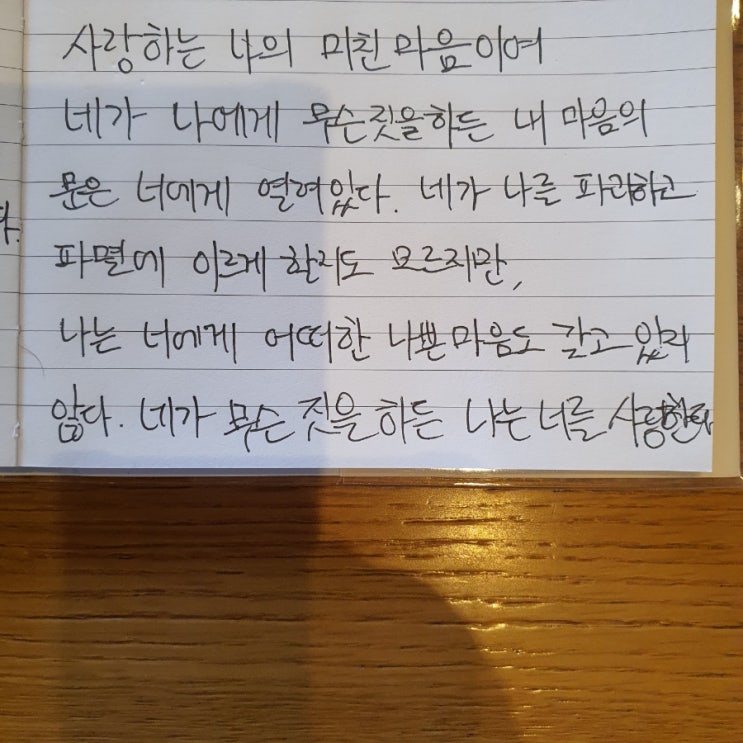 사랑하는 나의 미친 마음이여
네가 나에게 무슨짓을하든 내 마음의
문은 너에게 열려있다. 네가 나를 파괴하고
다.
파멸에 이르게 할지도 모르지만,
나는 너에게 어떠한 나쁜마음도 갖고 있지
않다. 네가 무슨 짓을 하든 나는 너를 사랑한다